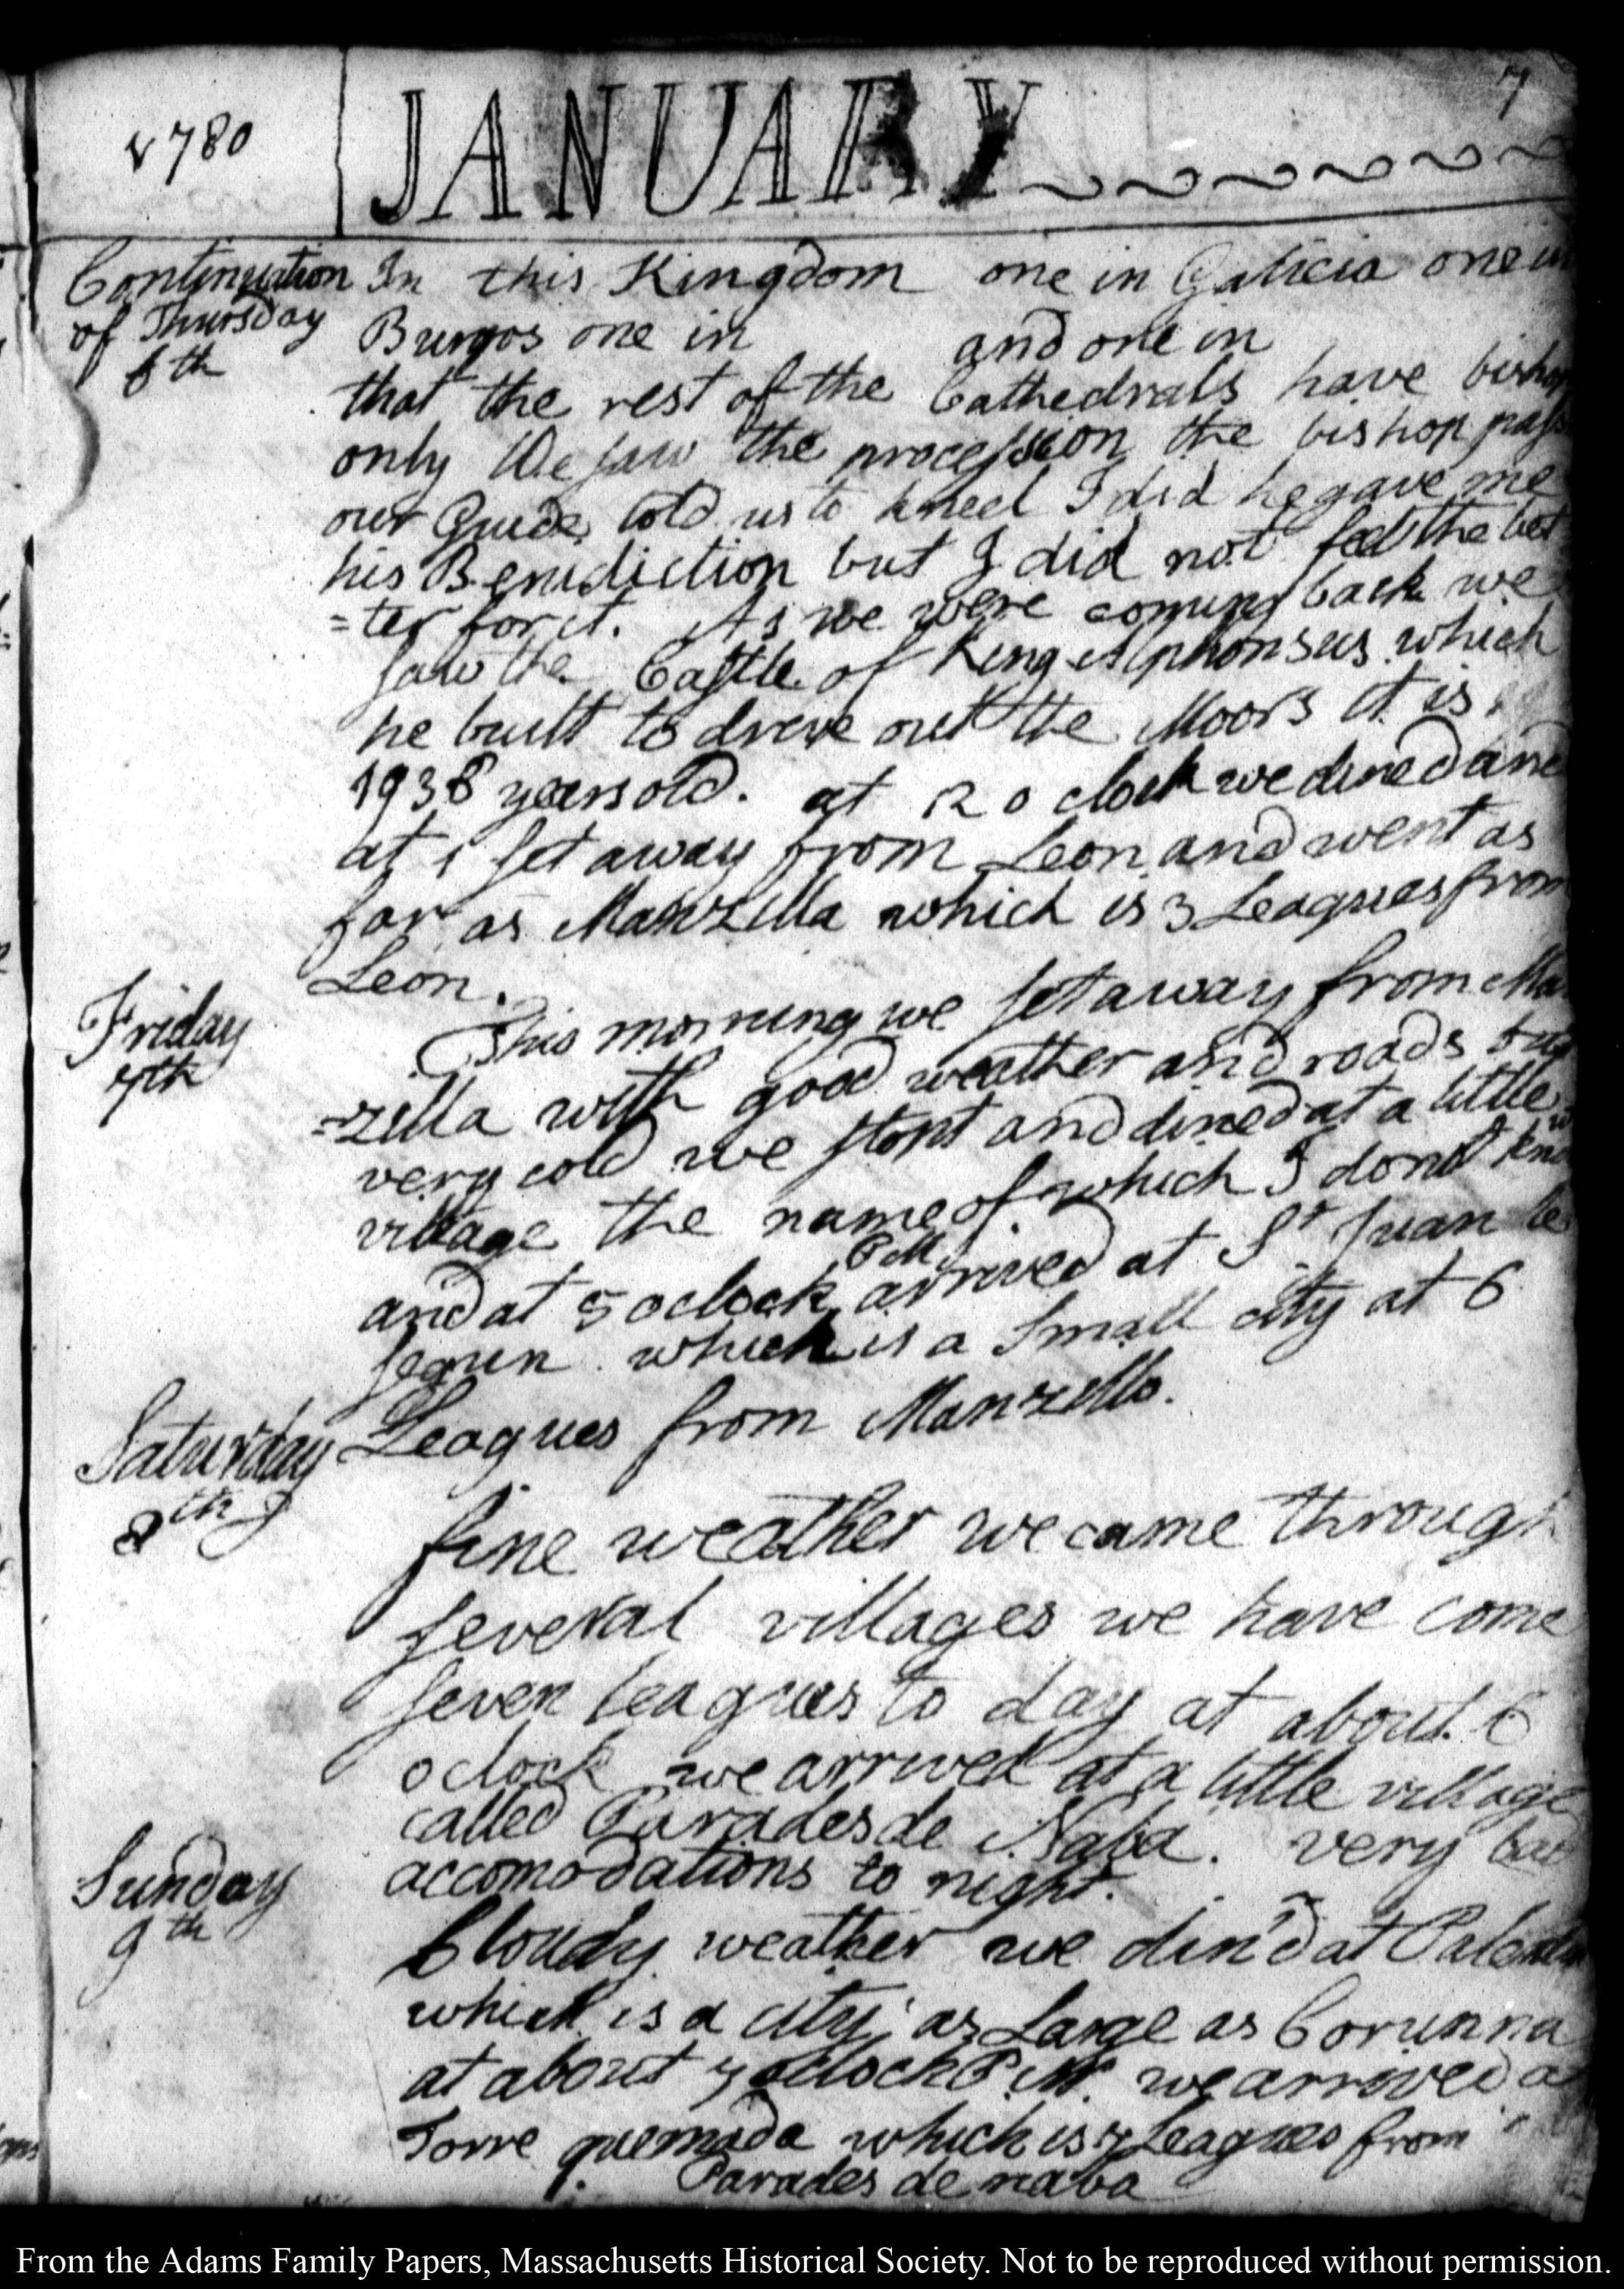 7
1780
JANUARY
Continuation
of Thursday
6th
In this Kingdom one in Galicia one in
Burgos one in and one in
that the rest of the Cathedrals have bishop
only We saw the procession the bishop pass
our Guide told us to kneel I did he gave me
his Benidiction but I did not feel the bet
=ter for it. As we were coming back we
saw the Castle of King Alphonsus which
he built to drive out the Moors it is
1936 years old. at 12 o clock we dined and
at 1 set away from Leon and went as
far as Manzilla which is 3 Leagues from
Leon.
Friday
7th
This morning we set away from Man
=zilla with good weather and roads but
very cold we stopt and dined at a little
village the name of which I dont know
and at 5 oclock PM arrived at St Juan le
segun which is a small city at 6
Leagues from Manzilla.
Saturday
8th
fine weather we came through
several villages we have come
seven leagues to day at about 6
o clock we arrived at a little village
called Parades de Naba. very bad
accomodations to night.
Sunday
9th
Cloudy weather we din'd at Palentia
which is a city as Large as Corunna
at about 7 oclock P.M. we arrived at
Torre quemada which is 7 Leagues from
Parades de naba
From the Adams Family Papers, Massachusetts Historical Society. Not to be reproduced without permission.